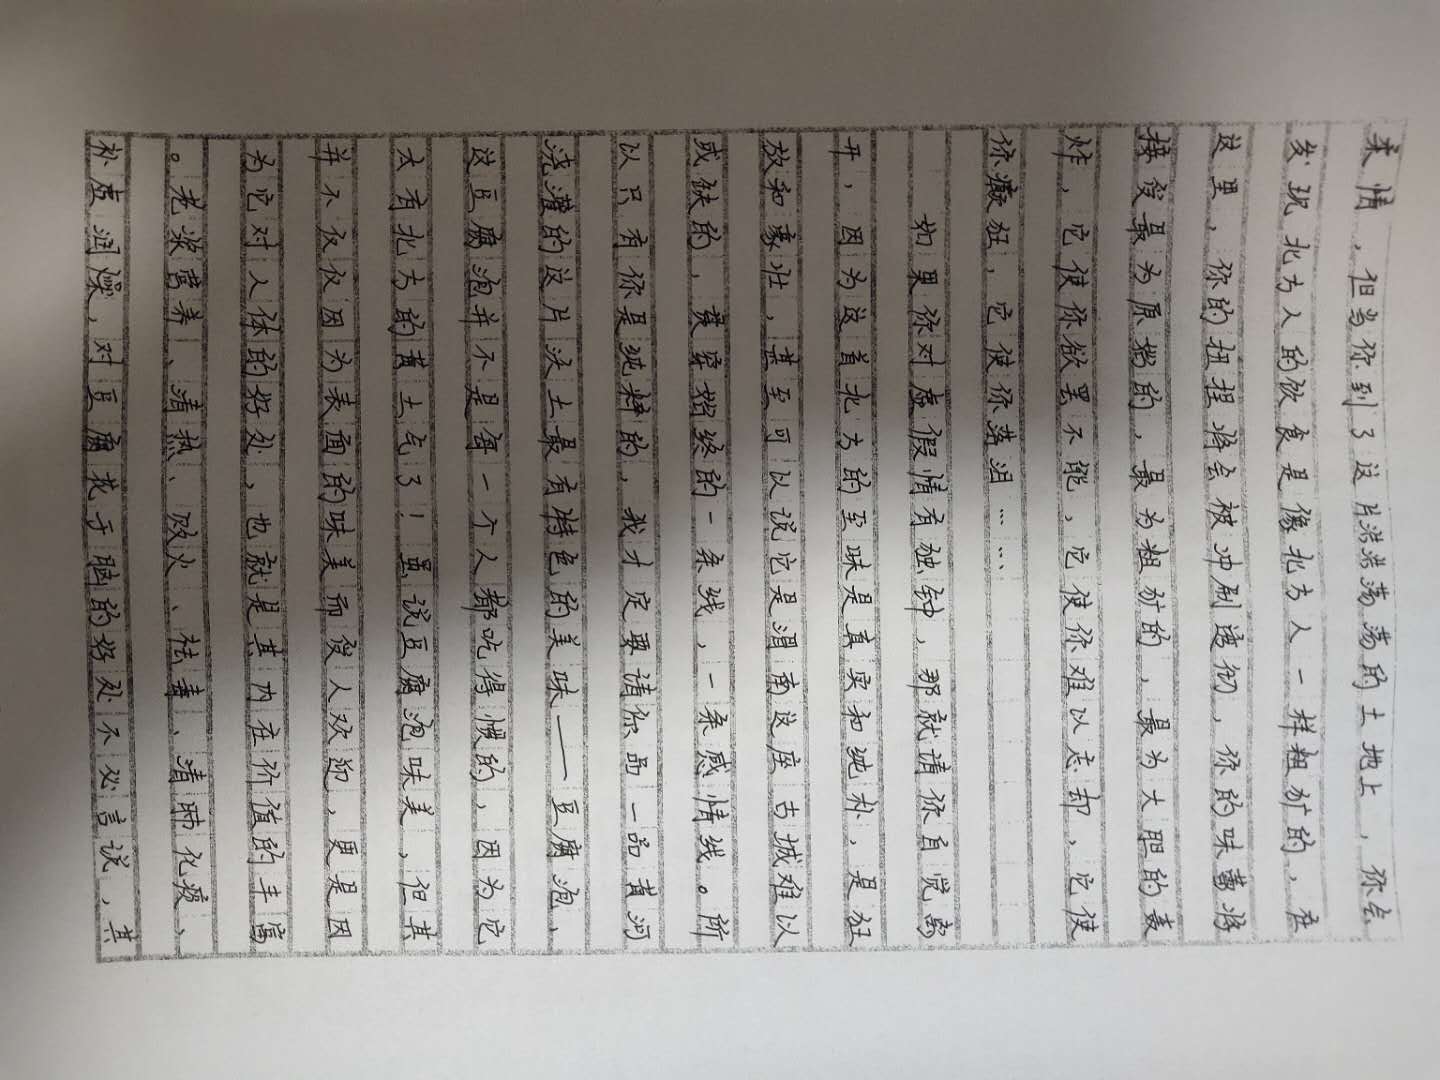 柔情，但当你到了这片浩浩荡荡的土地上，你会
发现北方人的饮食是像北方人一样粗矿的，在
这里，你的扭捏将会被冲刷透彻，你的味蕾将
接受最为原始的，最为粗矿的，最为大胆的轰
炸，它使你欲罢不能，它使你难以忘却，它使
你癫狂，它使你落泪……
如果你对虚假情有独钟，那就请你自觉离
开，因为这首北方的至味是真实和纯朴，是狂
放和豪壮，甚至可以说它是渭南这座古城难以
或缺的，贯穿始终的一条线，一条感情线。所
以只有你是纯粹的，我才定要请你品一品黄河
浇灌的这片沃土最有特色的美味——豆腐泡，
这豆腐泡并不是每一个人都吃得惯的，因为它
太有北方的黄土气了！虽说豆腐泡味美，但其
并不仅仅因为表面的味美而受人欢迎，更是因
为它对人体的好处，也就是其内在价值的丰富
。老浆营养、清热、败火、祛毒、清肺化痰、
补虚润燥，对豆腐花于脑的好处不必言说，其